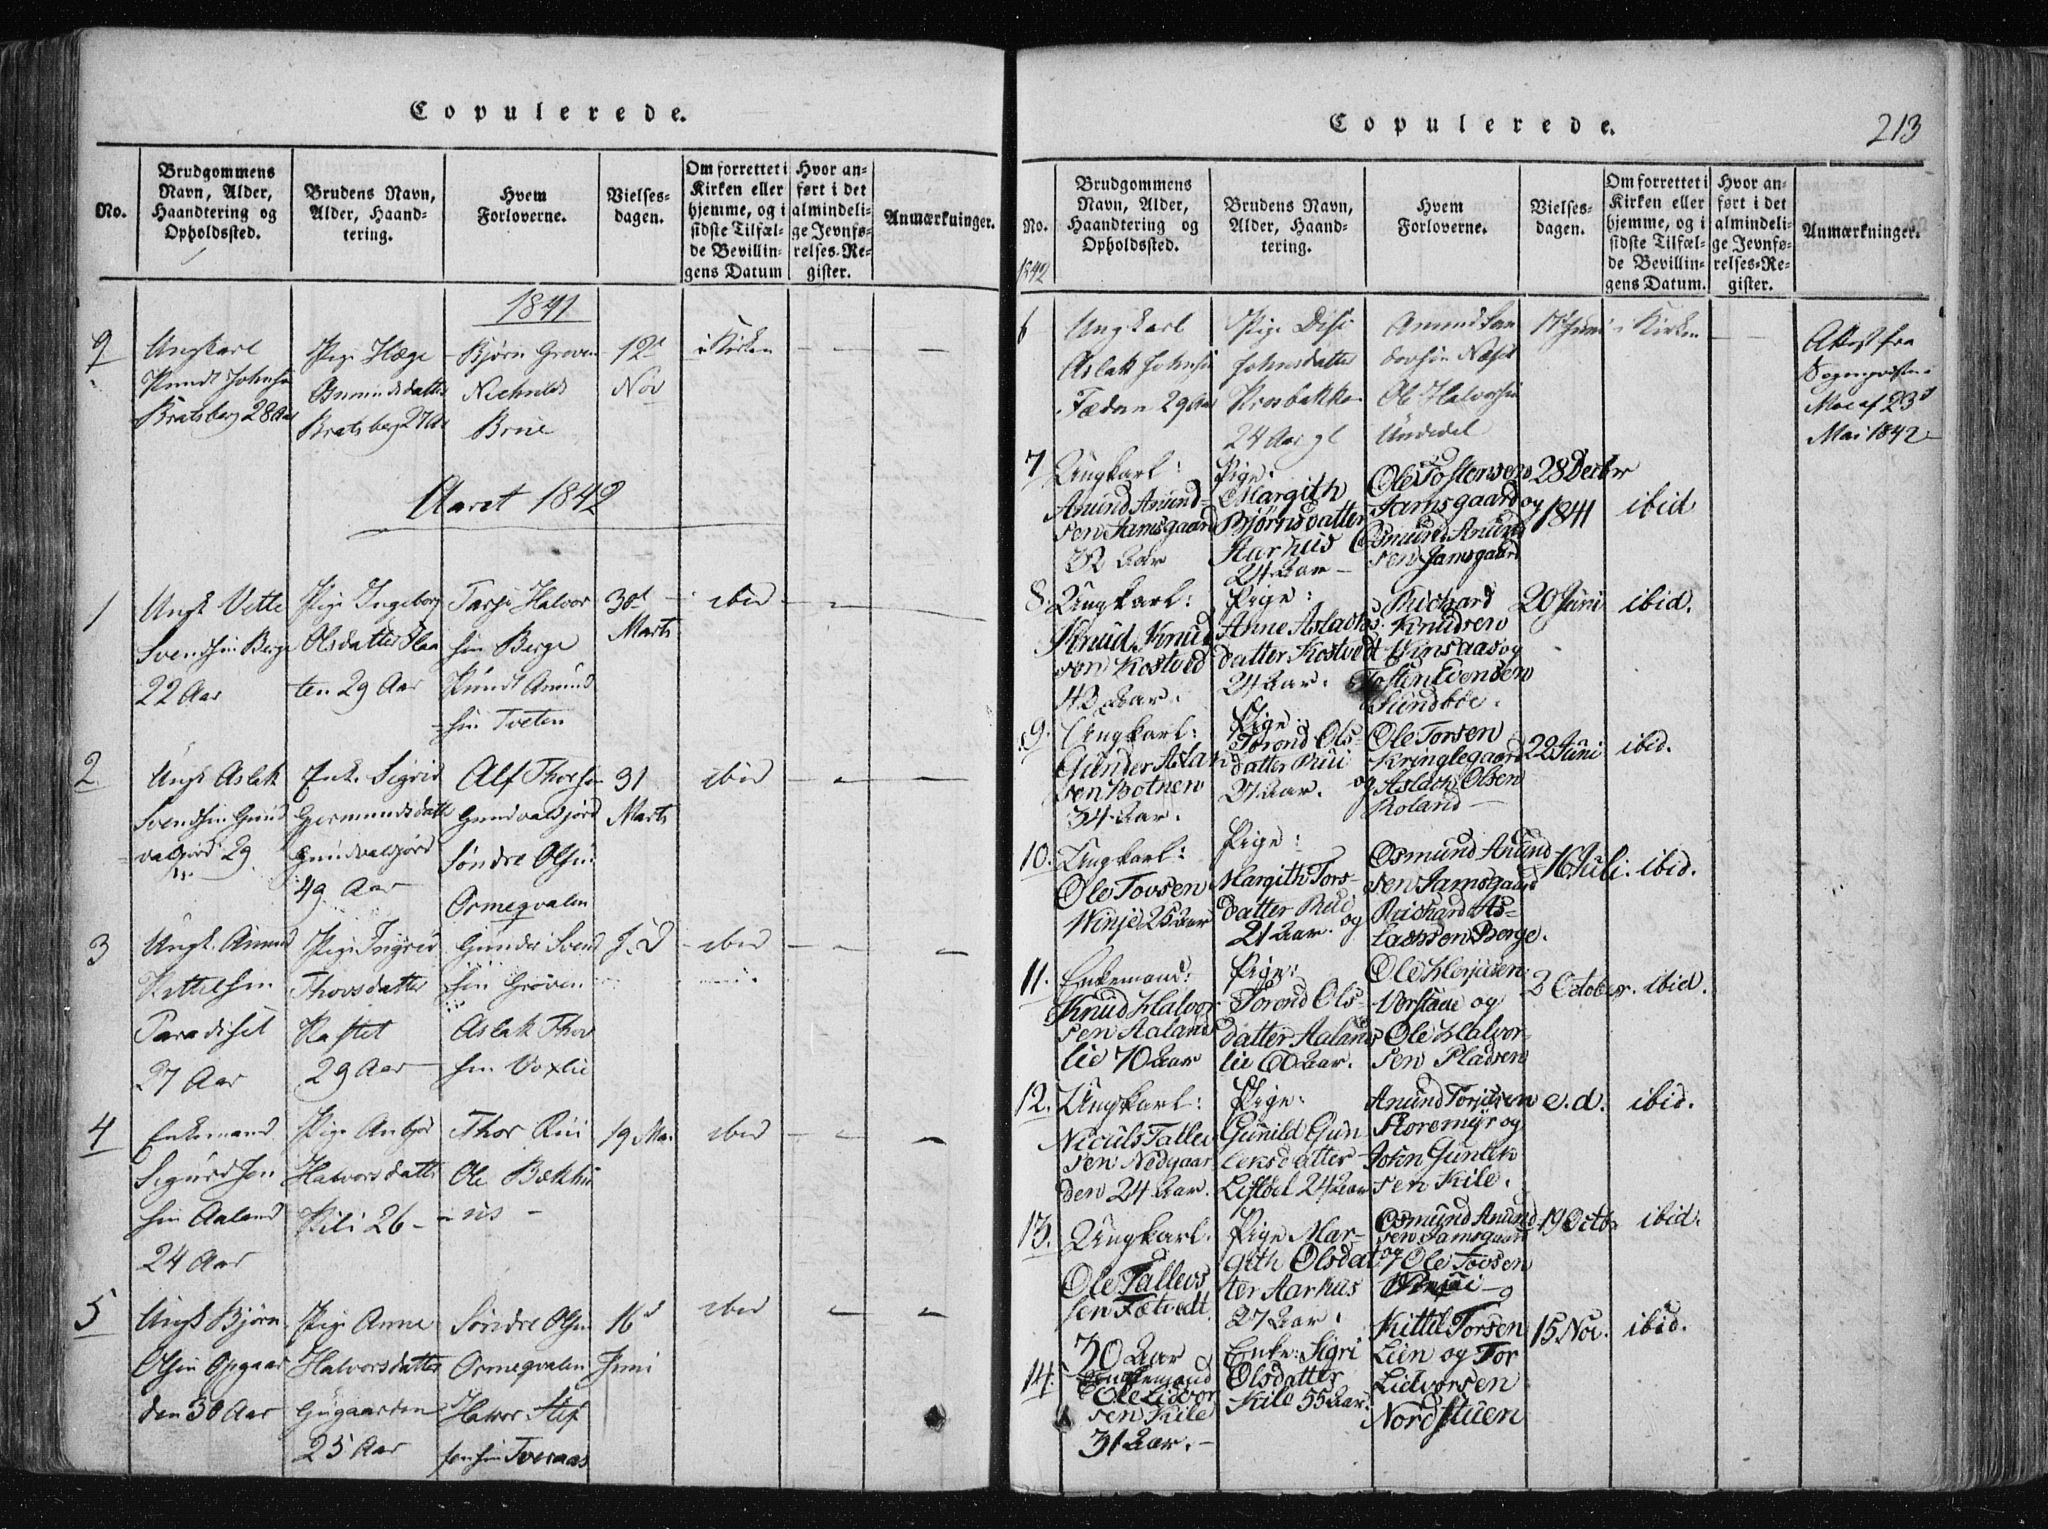 Copulerede.
No.
Brudgommens
Navn, Alder,
Haandtering og
Opholdssted.
Brudens Navn,
Alder, Haand-
tering.
Hvem
Forloverne.
Vielses-
dagen.
Om forrettet i
Kirken eller
hjemme, og i
sidste Tilfæl-
de Bevillin-
gens Datum
Hvor an-
ført i det
almindeli-
ge Jevnfø-
relses-Re-
gister.
Anmærkninger.
1841
9
Ungkarl
Knudt Johnsen
Bratsberg 28 Aar
Pige Hæge
Bratsberg 27 Aar
Bjørn Groven
Brue
12te
Nov
i Kirken
Aaret 1842
1
Ungk Vetle
Svendsen Berge
22 Aar
Pige Ingeborg
Olsdatter Slaa
ten 29 Aar
Tarje Halvor
sen Berge
Knudt Amund
sen Tveten
30te
Marts
ibid
2
Ungk Aslak
Svendsen Gund
valsjord 29
Enke Sigrid
Gjermundsdatter
Gundvalsjord
49 Aar
Alf Thorsen
Gundvalsjord
Søndre Olsen
Ormeqvalen
31
Marts
ibid
3
Ungk. Amund
Kittelsen
Paradiset
27 Aar
Pige Ingrid
Thovsdatter
Kastet
29 Aar
Gunder Svend
sen Groven
Aslak Thov
sen Voxlie
J. D
ibid
4
Enkemand
Sigurd Jon
sen Aaland
24 Aar
Pige Anbjør
Halvorsdatter
Kili 26
Thor Rui
Ole Bækhu
us
19 Mai
ibid
5
Ungk Bjørn
Olsen Opgaar
den 30 Aar
Pige Anne
Halvorsdatter
Gugaarden
25 Aar
Søndre Olsen
Ormeqvalen
Halvor Stef
fensen Tveraas
16d
Juni
ibid
Copulerede.
213
No.
1842
Brudgommens
Navn, Alder,
Haandtering og
Opholdssted.
Brudens Navn,
Alder, Haand-
tering.
Hvem
Forloverne.
Vielses-
dagen.
Om forrettet i
Kirken eller
hjemme, og i
sidste Tilfæl-
de Bevillin-
gens Datum.
Hvor an-
ført i det
almindeli-
ge Jevnfø-
relses-Re-
gister.
Anmærkninger.
6
Ungkarl
Aslak Johnsen
29 Aar
Pige
Johnsdatter
Krosbakken
24 Aar gl
Ole Halvorsen
Undedal
17 Juni
i Kirken
Attest fra
Moe af 23d
Mai 1842
7
Ungkarl:
Anund Anund-
sen Jamsgaard
32 Aar
Pige:
Margith
Bjørnsdatter
Aarhus
24 Aar
Ole Tostensen
Jamsgaard og
Osmund Anund
sen Jamsgaard
28 Decbr
1841
ibid
8.
Ungkarl:
Knud Knud
sen Kostved
43 Aar.
Pige:
Anne Aslachs
datter Kostvedt
24 Aar.
Richard
Knudsen
Vinsaas og
Tosten Evensen
Sundboe.
20 Juni
ibid.
9.
Ungkarl:
Gunder Aslach
sen Botnen
34 Aar.
Pige:
Torond Ols-
datter Rui
21 Aar.
Ole Torsen
Kringlegaard
og Aslach Olsen
Roland
22 Juni
ibid.
10.
Ungkarl:
Ole Tovsen
Winje 25 Aar
Pige:
Margith Tors-
datter Rue
21 Aar.
Osmund Anund
sen Jamsgaard
og Richard As-
lachsen Berge.
16 Juli.
ibid.
11.
Enkemand:
Knud Halvor
sen Aaland
lie 70 Aar
Pige:
Torond Ols-
datter Aalands
lie 60 Aar.
Ole Herjusen
Vorstaue og
Ole Halvor-
sen Pladsen
2 October.
ibid.
12.
Ungkarl:
Niculs Tallev
sen Nedgaar
den 24 Aar.
Pige:
Gunild Gun
leksdatter
Listøel 24 Aar
Anund Torjusen
Storemyr og
John Gunlek
sen Kile.
e.d.
ibid.
13.
Ungkarl.
Ole Tallevs
sen Fætvedt.
30 Aar
Pige Mar-
gith Olsdat
ter Aarhus
27 Aar.
Osmund Anund
sen Jamsgaard
og Ole Tovsen
19 Octbr
ibid.
14.
Enkemand
Ole Lidvor
sen Kile
31 Aar.
Enke: Sigri
Olsdatter
Kile 55 Aar.
Kittil Torsen
Lien og Tor
Lidvorsen
Nordstuen
15 Nov.
ibid.